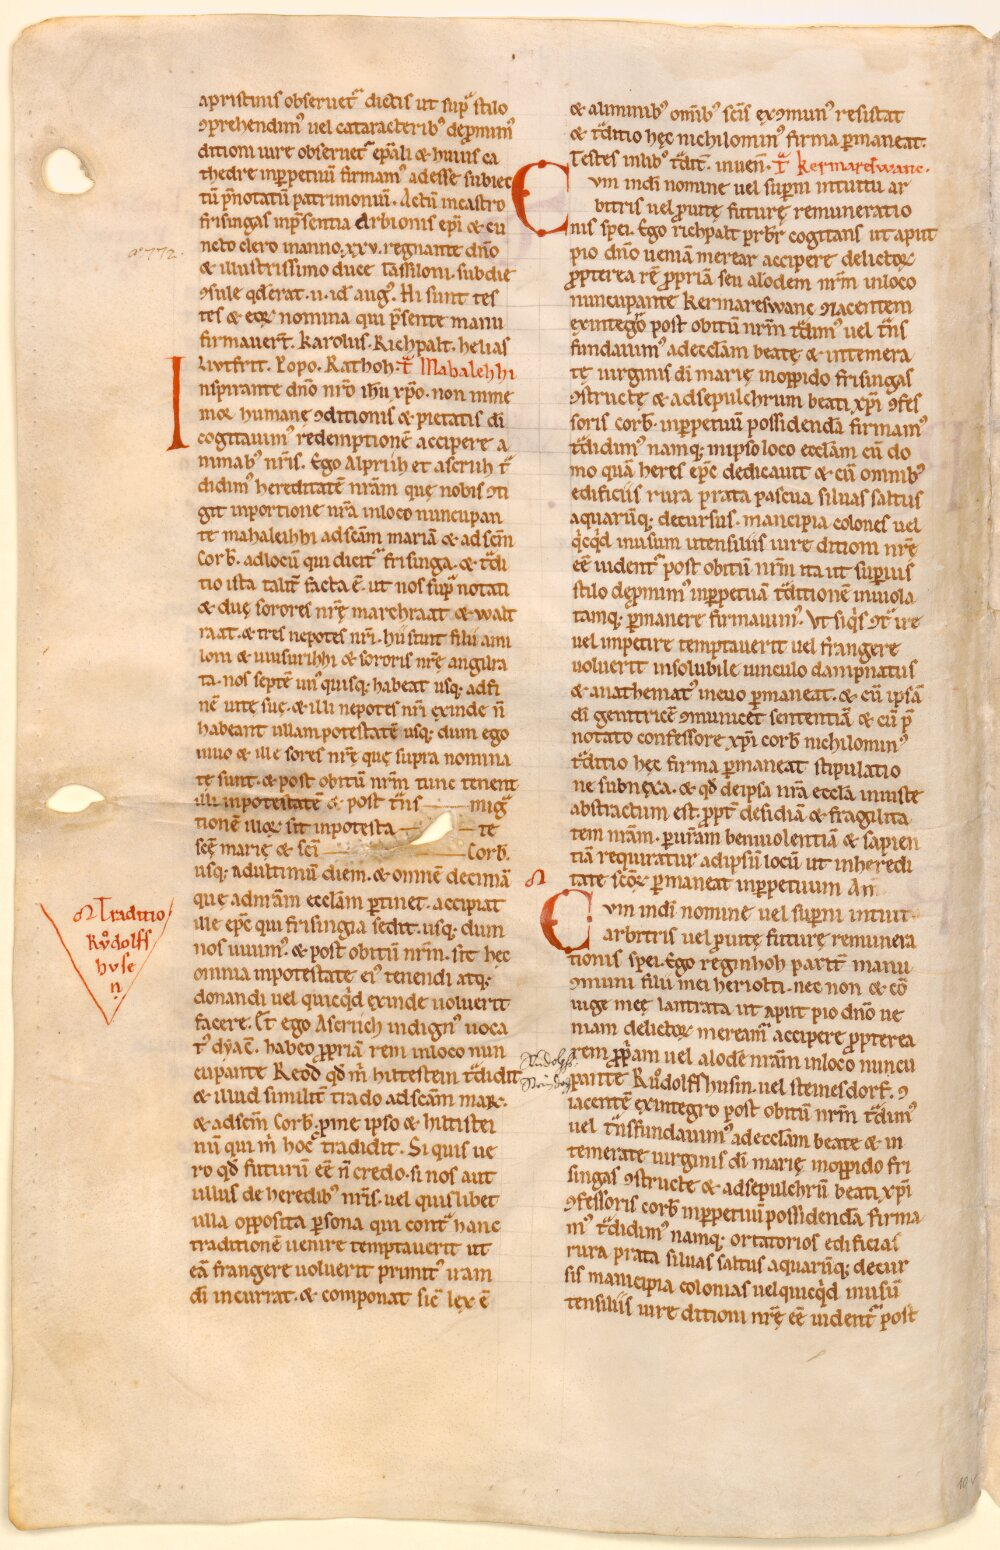 apristinis obseruet᷑ dictis ut sup᷑ stilo
ꝯprehendimꝰ uel cataracteribꝰ deꝓmimꝰ
ditioni iure obseruet᷑ ep̄ali & huius ca
thedre inꝑpetuū firmamꝰ adesse subiec
tū p̄notatū patrimoniū. Actū incastro
frisingas inp̄sentia Arbionis ep̄i & cū
ncto clero inanno.xxv.regnante dn̄o
aº 772.
& illustrissimo duce Tassiloni. subdie
ꝯsule qd̄erat.ii.id᷑ augꝰ. Hi sunt tes
tes & eoꝝ nomina qui p̄sente manu
firmauer̄t. Karolus. Richpalt. helias
Liutfrit. Popo. Rathoh. t᷑ Mahalehhi
Inspirante dn̄o nr̄o ih̄u xp̄o. non inme
mor humanę ꝯditionis & pietatis dī
cogitauimꝰ redemptionē accipere a
nimabꝰ nr̄is. Ego Alprih et ascrih t᷑
didimꝰ hereditatē nrām quę nobis ꝯti
git inportione nr̄a inloco nuncupan
te mahaleihhi adscām mariā & adscm̄
Corb̄. adlocū qui dicit᷑ frisinga. & t᷑di
tio ista talit᷑ facta ē. ut nos sup᷑ notati
& duę sorores nr̄ę marchraat & walt
raat. & tres nepotes nr̄i. hii sunt filii aim
loni & uuisurihhi & sororis nr̄ę angilra
ta. nos septē unꝰquisq; habeat usq; adfi
nē uitę suę. & illi nepotes nr̄i exinde n̄
habeant ullam potestatē usq; dum ego
uiuo & ille sores nr̄ę quę supra nomina
te sunt. & post obitū nr̄m tunc tenent
illi inpotestatē & post t᷑ns mig᷑
tionē illoꝝ sit inpotesta te
scę̄ marię & scī Corb̄.
usq; adultimū diem. & omnē decimā
quę adnrām ecclām ꝑtinet. accipiat
ille ep̄c qui frisingia sedit. usq; dum
nos uiuimꝰ & post obitū nr̄m. sit hęc
omnia inpotestate eiꝰ tenendi atq;
donandi uel quicq̇d exinde uoluerit
facere. Et ego Ascriich indignꝰ uoca
tꝰ dyac̄. habeo ꝓpriā rem inloco nun
cupante Reod qd̄ m̄ hittestein t᷑didit
& illud similit᷑ trado adscām mar.
& adscm̄ Corb̄. ꝓme ipso & hittistei
nū qui m̄ hoc tradidit. Si quis ue
ro qd̄ futurū eē n̄ credo. si nos aut
ullus de heredibꝰ nr̄is. uel quislibet
ulla opposita ꝑsona qui cont᷑ hanc
traditionē uenire temptauerit ut
eā frangere uoluerit primitꝰ iram
dī incurrat. & componat sic̄ lex ē
Traditio
Růdolfs
huse
n̄
& aluminibꝰ om̄ibꝰ scīs exꝯmunꝰ resistat
& t᷑ditio hęc nichilominꝰ firma ꝑmaneat.
Testes inlibꝰ t᷑dit̄. inuen̄. t᷑ Kermareswanc.
Cvm indī nomine uel suꝑni intuitu ar
bitris uel ꝓ uitę futurę remuneratio
nis spei. Ego richpalt prb̄r cogitans ut aput
pio dn̄o ueniā merear accipere delictoꝝ
ꝓpterea rē ꝓpriā seu alodem nr̄m inloco
nuncupante Kermareswanc ꝯiacentem
exintegro post obitū nr̄m t᷑dimꝰ uel t᷑ns
fundauimꝰ adecclām beatę & intemera
te uirginis dī marię inoppido frisingas
ꝯstructę & adsepulchrum beati xp̄i ꝯfes
soris corb̄. inꝑpetuū possidendā firmamꝰ
t᷑didimꝰ namq; inipso loco ecclām cū do
mo quā heres ep̄c dedicauit & cū omnibꝰ
edificiis rura prata pascua siluas saltus
aquarūq; decursus. mancipia colones uel
q̇cq̇d inusum utensiliis iure ditioni nr̄ę
eē uident᷑ post obitū nr̄m ita ut suꝑius
stilo deꝓmimꝰ inꝑpetuā t᷑ditionē inuiola
tamq; ꝑmanere firmauimꝰ. Vt siq̇s ꝯt᷑ ire
uel inpetire temptauerit uel frangere
uoluerit insolubile uinculo dampnatus
& anathematꝰ ineuo ꝑmaneat. & cū ipsā
dī genitricē ꝯmunicet sententiā & cū p̄
notato confessore xp̄i corb̄ nichilominꝰ
t᷑ditio hęc firma ꝑmaneat stipulatio
ne subnexa. & qd̄ deipsa nr̄a ecclā iniuste
abstractum est. ꝓpt᷑ desidiā & fragilita
tem nrām. ꝑ ur̄am beniuolentiā & sapien
tiā requiratur adipsū locū ut inheredi
tate scōꝝ ꝑmaneat inꝑpetuum Am
Cvm indī nomine uel suꝑni intuit
arbitris uel ꝓ uitę futurę remunera
tionis spei. Ego reginhoh parit᷑ manu
ꝯmuni filii mei heriolti. nec non & cō
iuge meę lantrata ut aput pio dn̄o ue
niam delictoꝝ meream᷑ accipere ꝓpterea
rem ꝓp̄am uel alodē nrām inloco nuncu
pante Růdolfshusin. uel steinesdorf. ꝯ
iacentē exintegro post obitū nr̄m t᷑dimꝰ
uel t᷑nsfundauimꝰ adecclām beate & in
temerate uirginis dī marię inoppido fri
singas ꝯstructe & adsepulchrū beati xp̄i
ꝯfessoris corb̄ inꝑpetuū possidenda firma
mꝰ t᷑didimꝰ namq; ortatorios edificias
rura prata siluas saltus aquarūq; decur
sis mancipia colonias uel quicq̇d inusū
tensiliis iure ditioni nr̄ę eē uident᷑ post